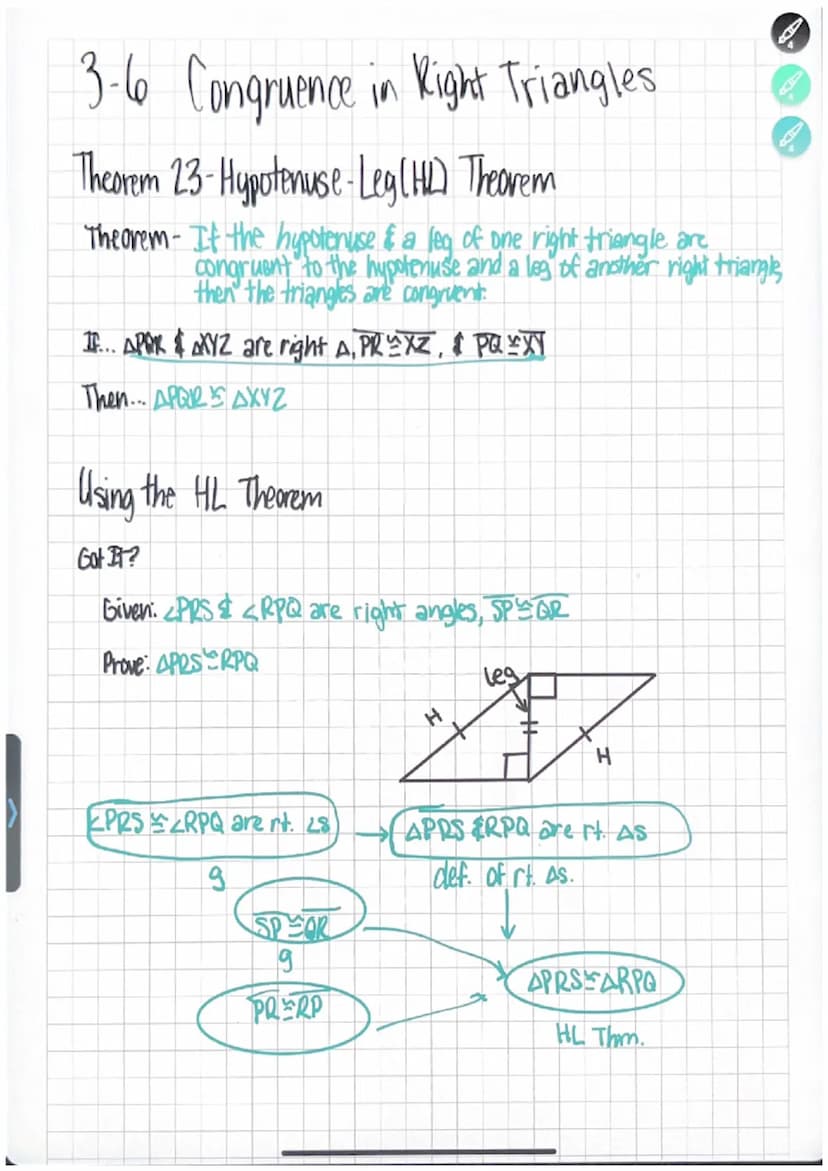 3-6 Congruence in Right Triangles
Theorem 23-Hypotenuse-Leg(HL) Theorem
Theorem- If the hypotenuse & a leg of one right triangle are
congruent to the hypotenuse and a leg of another right triangle,
then the triangles are congruent.
If... △PQR & △XYZ are right △, PR≅XZ, & PQ≅XY
Then... △PQR ≅ △XYZ
Using the HL Theorem
Got It?
Given: ∠PRS & ∠RPQ are right angles, SP≅QR
Prove: △PRS≅RPQ
Leg
H
H
∠PRS ≅ ∠RPQ are rt. ∠s
△PRS & RPQ are rt. △s
g
def. of rt. △s.
SP≅QR
g
△PRS≅△RPQ
PR≅RP
HL Thm.